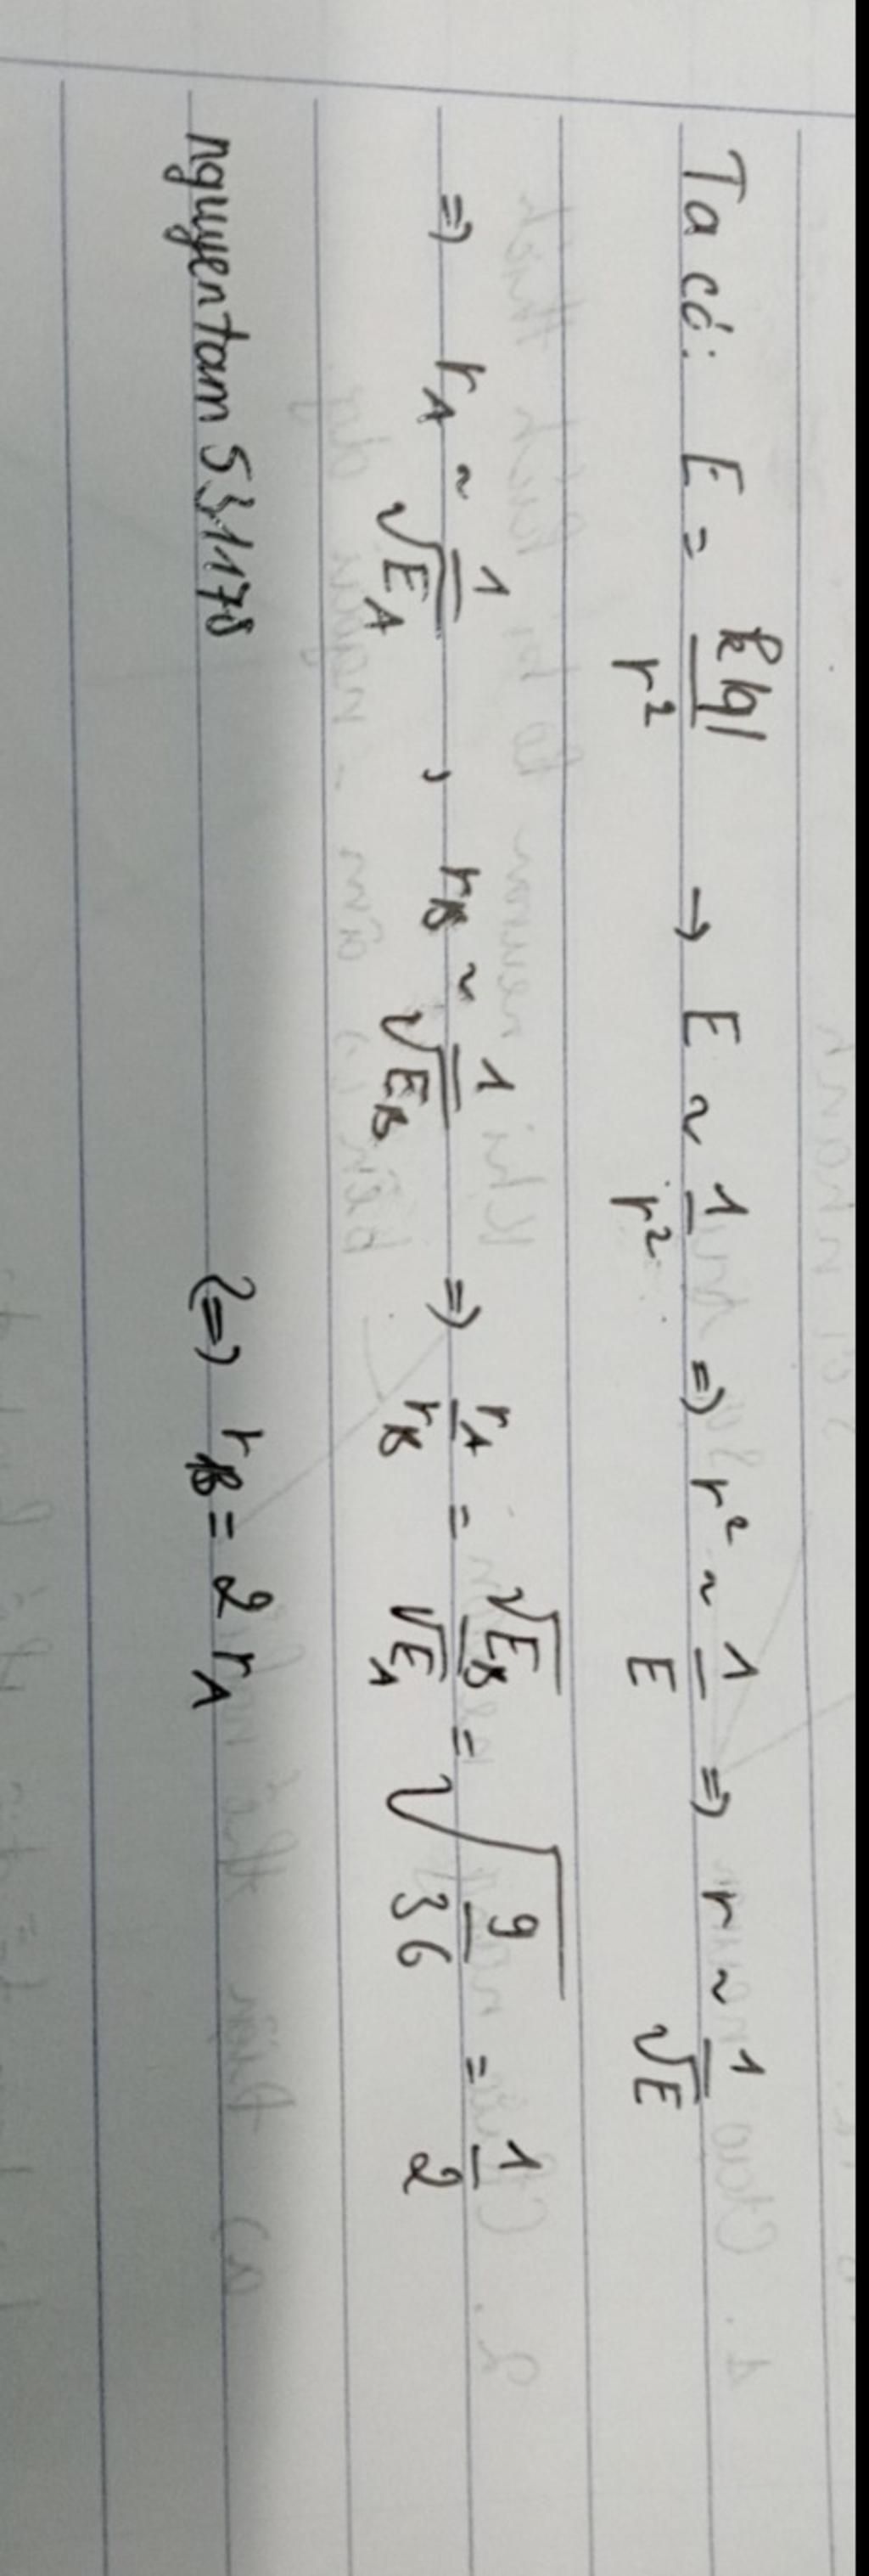 Ta có: E = k|q|/r² → E ~ 1/r² => r² ~ 1/E => r ~ 1/√E
=> rA ~ 1/√EA , rB ~ 1/√EB => rA/rB = √EB/√EA = √(9/36) = 1/2
nguyentam531178 (=) rB = 2rA